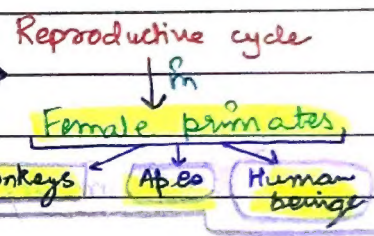 Reproductive cycle
in
Female primates
nkeys Apes Human
beings